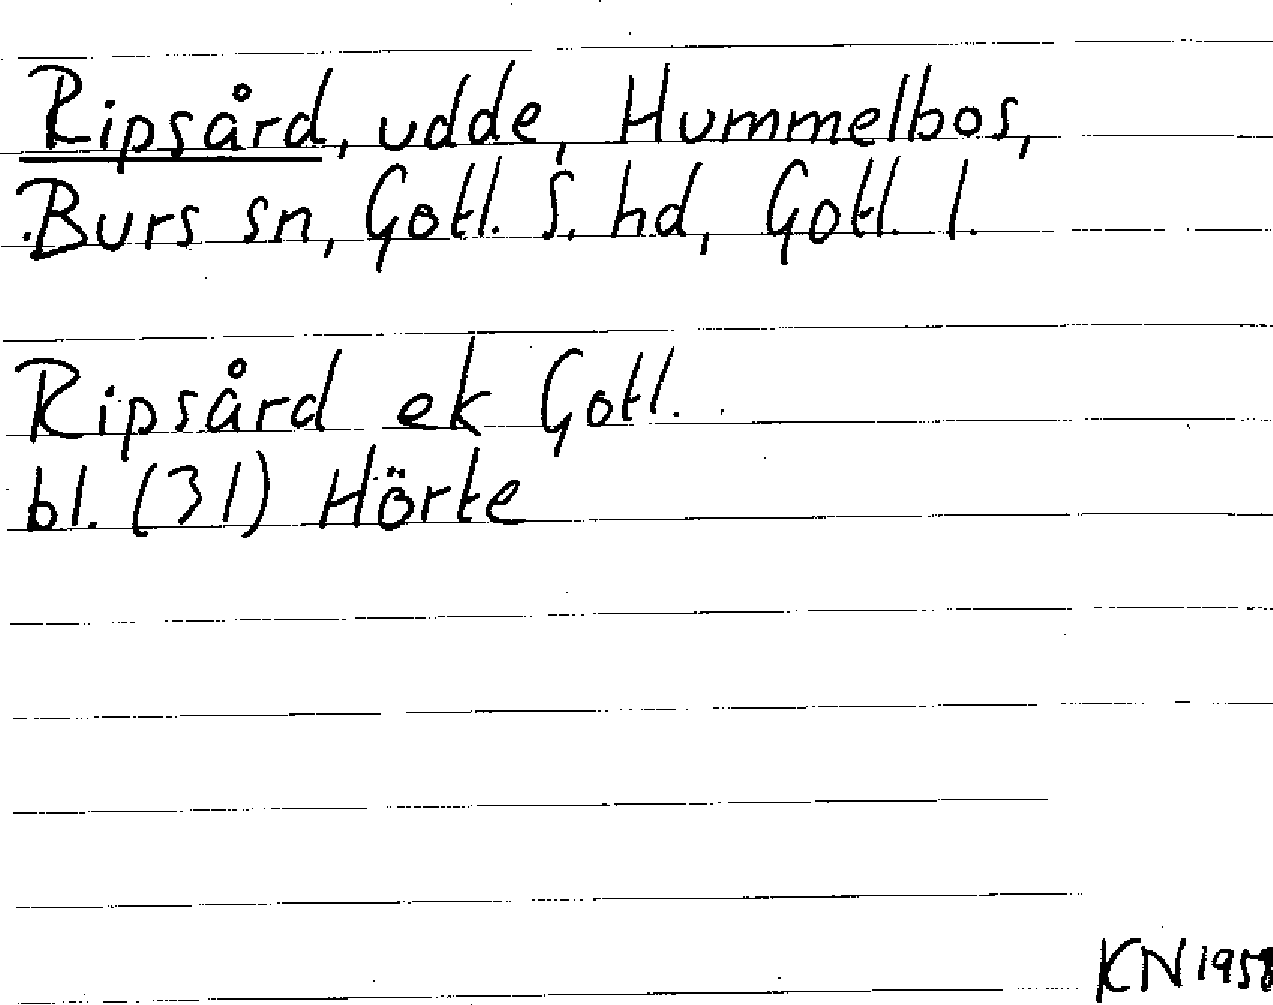 Ripsård, udde, Hummelbos,
Burs sn, Gotl. S. hd, Gotl. l.
Ripsård ek Gotl.
bl. (31) Hörte
KN 1958